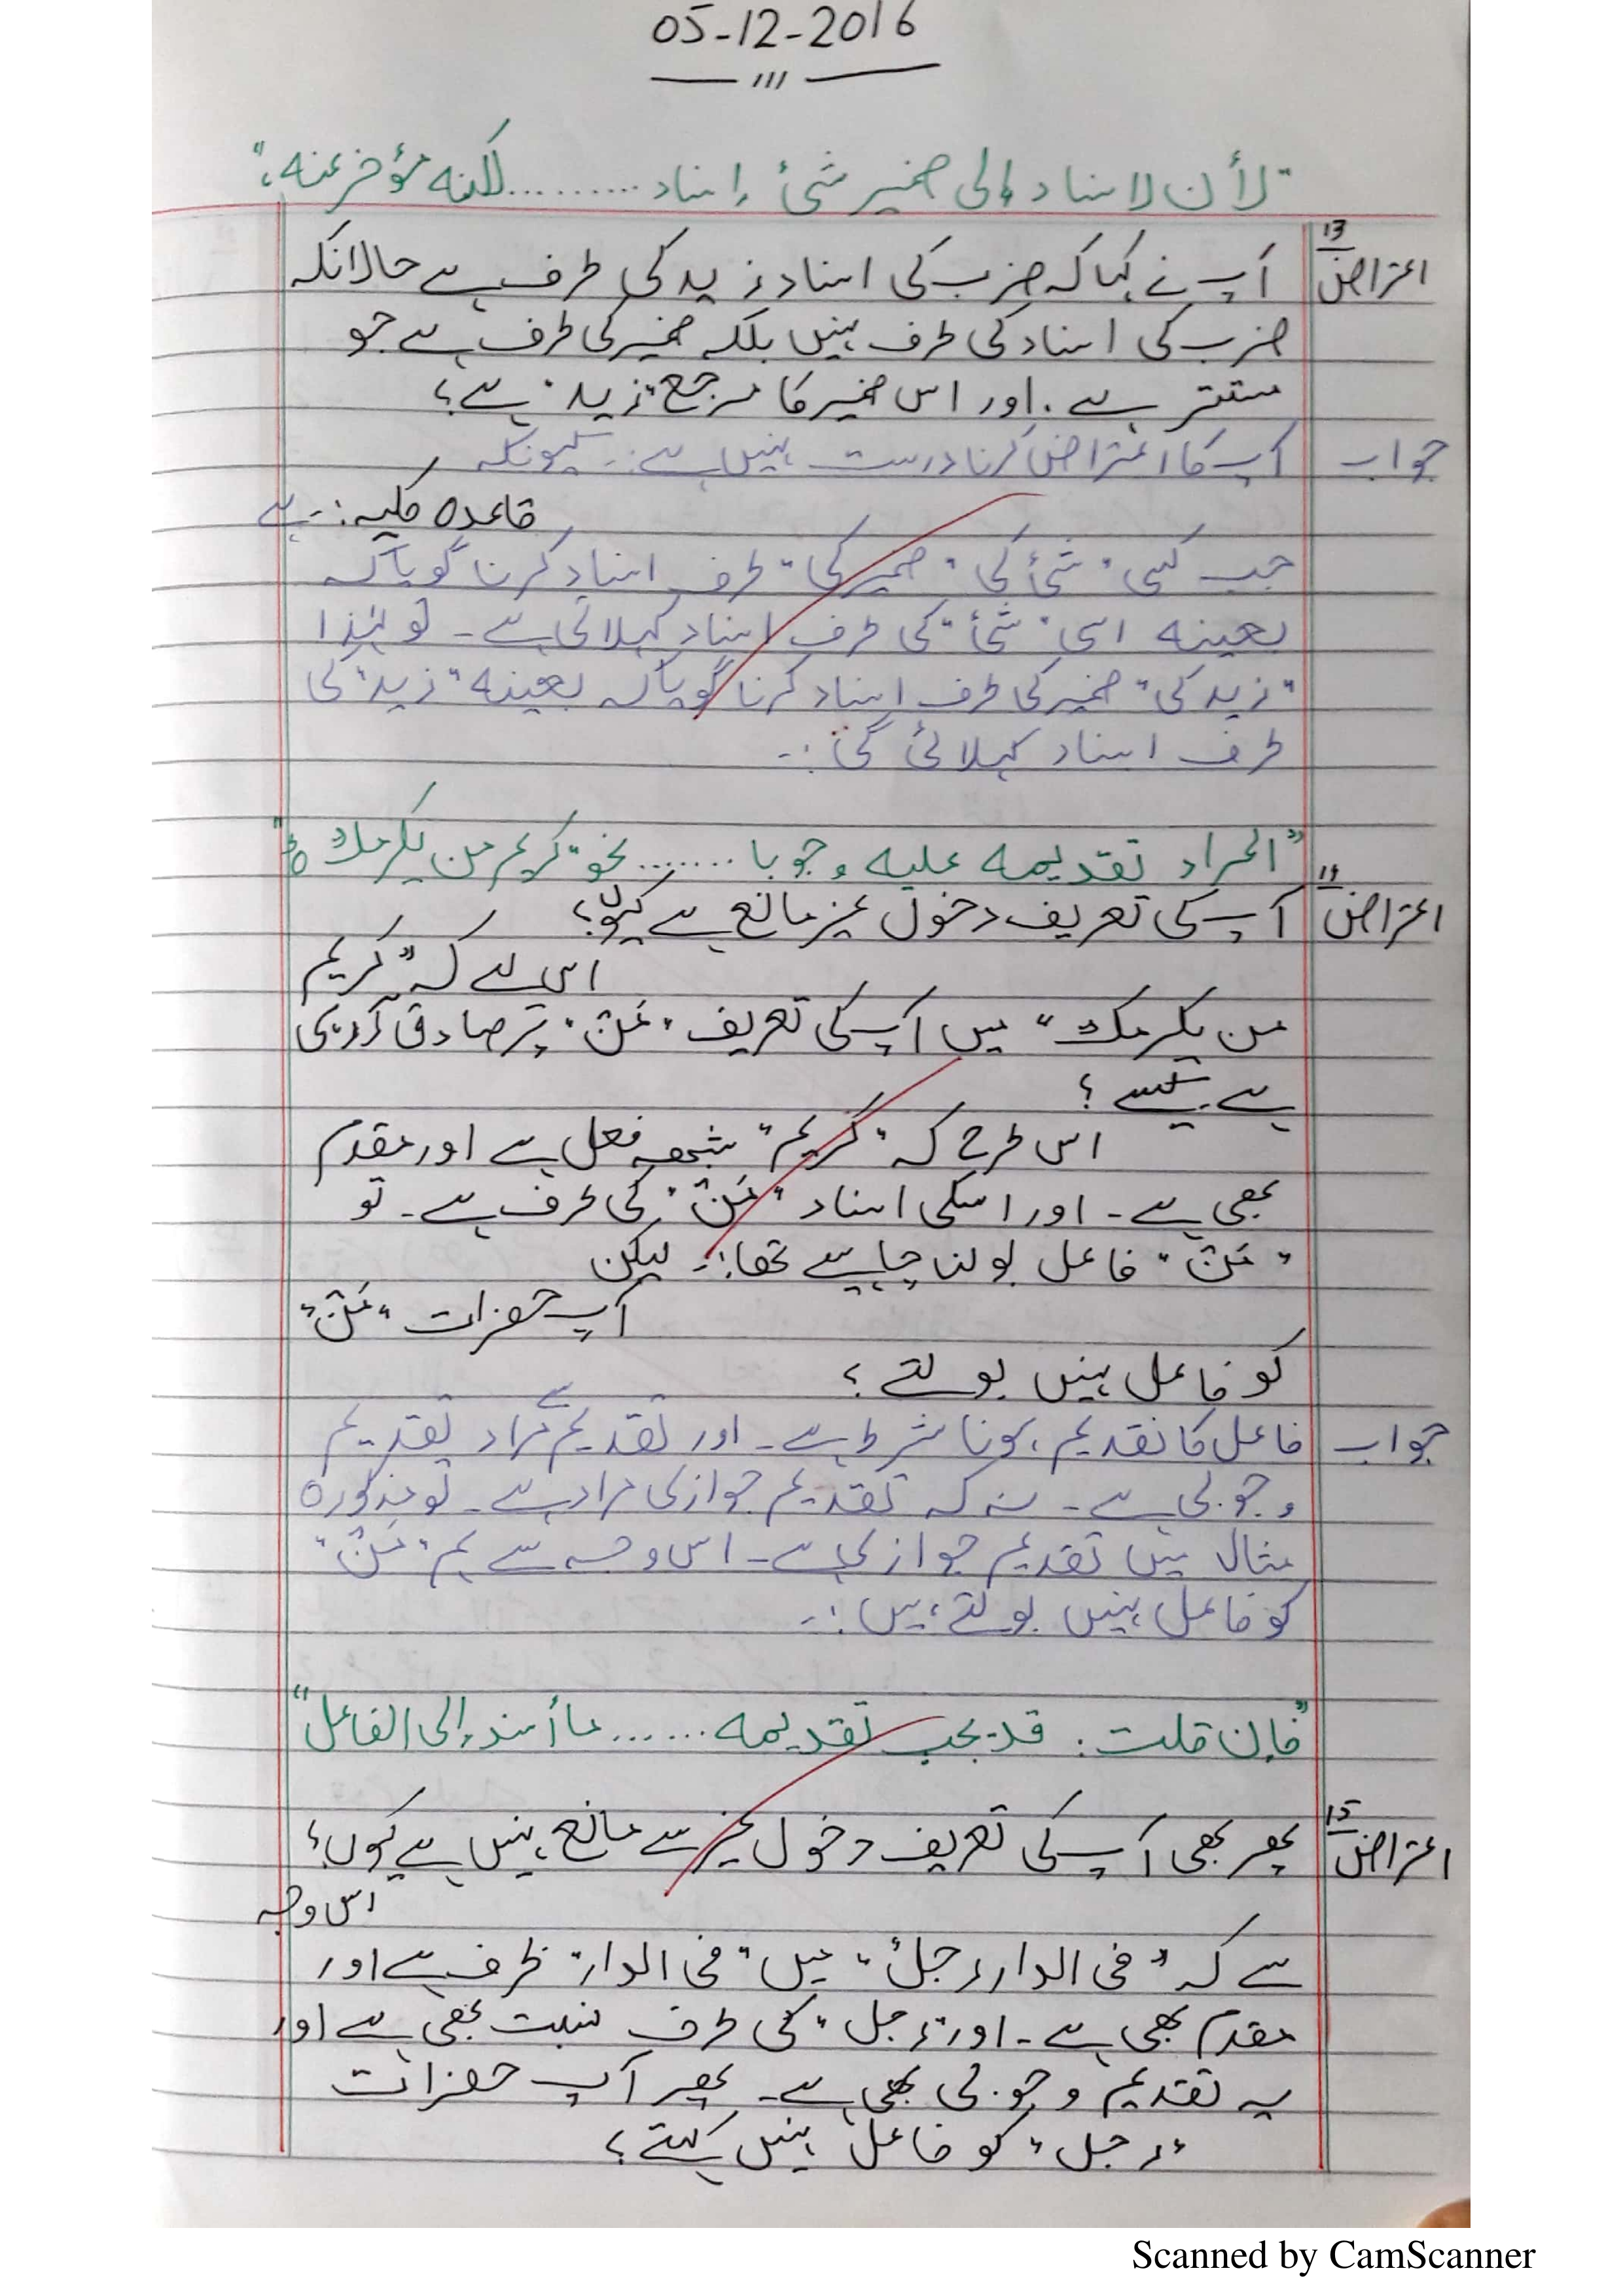 05-12-2016
"لأن الاسناد إلى ضمير شئ إسناد ......... لكنه مؤخر عنه"
اعتراض 13 آپ نے کہا کہ ضرب کی اسناد زید کی طرف ہے حالانکہ
ضرب کی اسناد کی طرف نہیں بلکہ ضمیر کی طرف ہے جو
مستتر ہے۔ اور اس ضمیر کا مرجع "زید" ہے؟
جواب آپ کا اعتراض کرنا درست نہیں ہے:۔ کیونکہ
قاعدہ کلیہ:۔ ہے
جب کسی "شئ کی" ضمیر کی" طرف اسناد کرنا گویا کہ
بعینہ اسی "شئ" کی طرف اسناد کہلاتی ہے۔ تو لہٰذا
"زید کی" ضمیر کی طرف اسناد کرنا گویا کہ بعینہ "زید" کی
طرف اسناد کہلائی گی:۔
"المراد تقديمه عليه وجوبا ....... نحو كريم من يكرمك"
اعتراض 14 آپ کی تعریف دخول غیر مانع ہے کیوں؟
اس لئے کہ "کریم
من یکرمک" میں آپ کی تعریف "مَنْ" پر صادق آ رہی
ہے کیسے؟
اس طرح کہ "کریم" شبہ فعل ہے اور مقدم
بھی ہے۔ اور اسکی اسناد "مَنْ" کی طرف ہے۔ تو
"مَنْ" فاعل بولنا چاہیے تھا:۔ لیکن
آپ حضرات "مَنْ"
کو فاعل نہیں بولتے؟
جواب فاعل کا تقدیم ہونا شرط ہے۔ اور تقدیم سے مراد تقدیم
وجوبی ہے۔ نہ کہ تقدیم جوازی مراد ہے۔ تو مذکورہ
مثال میں تقدیم جوازی ہے۔ اس وجہ سے ہم "مَنْ"
کو فاعل نہیں بولتے ہیں:۔
"فإن قلت: قد يجب تقديمه ...... ما أسند إلى الفاعل"
اعتراض 15 پھر بھی آپ کی تعریف دخول غیر سے مانع نہیں ہے کیوں؟
اس وجہ
سے کہ "فی الدار رجلٌ" میں "فی الدار" ظرف ہے اور
مقدم بھی ہے۔ اور "رجل" کی طرف نسبت بھی ہے اور
یہ تقدیم وجوبی بھی ہے۔ پھر آپ حضرات
"رجل" کو فاعل نہیں کہتے؟
Scanned by CamScanner